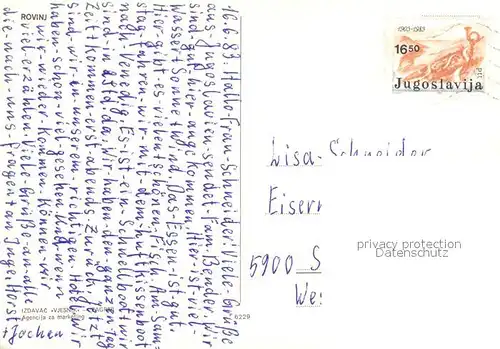 ROVINJ
16.6.83. Hallo-Frau-Schneider! Viele-Grüße
aus-Jugoslawien-sendet-Fam. Bender. Wir
sind-gut-hier-angekommen. Hier-ist-viel-
Wasser+Sonne+Wind. Das-Essen-ist-gut.
Hier-gibt-es-vielen-schönen-Fisch. Am-Sam=
stag-fahren-wir-mit-dem-Luftkissenboot
nach-Venedig. Es-ist-ein-Schnellboot. wir
sind-in-2std.da. Wir-haben-den-ganzen-Tag
Zeit+kommen-erst-abends-Zurück. Jetzt
sind-wir-in-unserem-richtigen-Hotel. Wir
haben-schon-viel-gesehen. Und-wenn
wir-wieder-kommen-Können-wir
viel-erzählen. Viele-Grüße-an-alle
die-nach-uns-fragen Inge, Horst
+Jochen
IZDAVAČ »VJESNIK«
Agencija za marketing
6229
1903-1983
16.50
ptt
Jugoslavija
Lisa-Schneider
Eisern
5900 S
We
privacy protection
Datenschutz